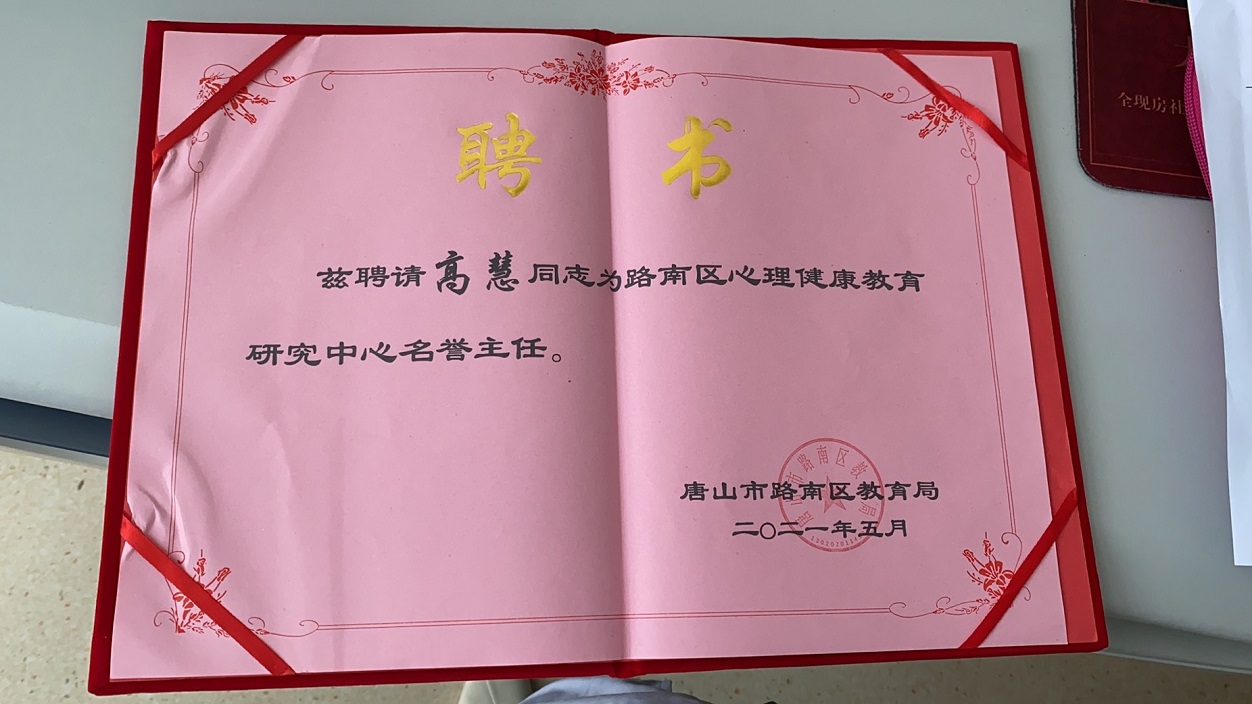 聘 书
兹聘请高慧同志为路南区心理健康教育
研究中心名誉主任。
唐山市路南区教育局
二〇二一年五月
全现房社